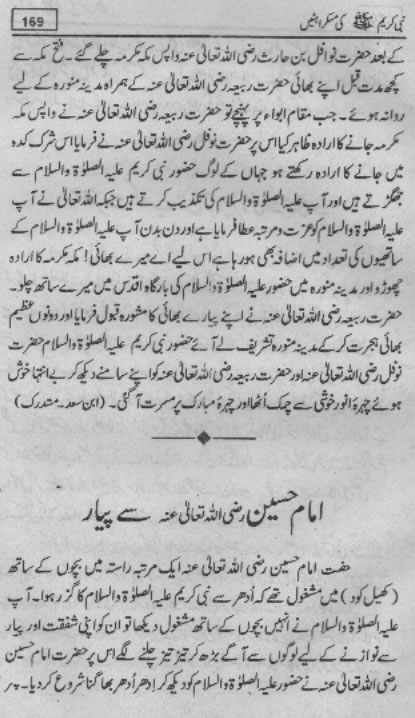 نبی کریم ﷺ کی مسکراہٹیں
169
کے بعد حضرت نوافل بن حارث رضی اللہ تعالیٰ عنہ واپس مکہ مکرمہ چلے گئے۔ فتح مکہ سے
کچھ مدت قبل اپنے بھائی حضرت ربیعہ رضی اللہ تعالیٰ عنہ کے ہمراہ مدینہ منورہ کے لیے
روانہ ہوئے۔ جب مقام ابواء پر پہنچے تو حضرت ربیعہ رضی اللہ تعالیٰ عنہ نے واپس مکہ
مکرمہ جانے کا ارادہ ظاہر کیا اس پر حضرت نوفل رضی اللہ تعالیٰ عنہ نے فرمایا اس شرک کدہ
میں جانے کا ارادہ رکھتے ہو جہاں کے لوگ حضور نبی کریم علیہ الصلوٰۃ والسلام سے
جھگڑتے ہیں اور آپ علیہ الصلوٰۃ والسلام کی تکذیب کرتے ہیں جبکہ اللہ تعالیٰ نے آپ
علیہ الصلوٰۃ والسلام کو عزت و مرتبہ عطا فرمایا ہے اور دن بدن آپ علیہ الصلوٰۃ والسلام کے
ساتھیوں کی تعداد میں اضافہ بھی ہو رہا ہے اس لیے اے میرے بھائی! مکہ مکرمہ کا ارادہ
چھوڑو اور مدینہ منورہ میں حضور علیہ الصلوٰۃ والسلام کی بارگاہ اقدس میں میرے ساتھ چلو۔
حضرت ربیعہ رضی اللہ تعالیٰ عنہ نے اپنے پیارے بھائی کا مشورہ قبول فرمایا اور دونوں عظیم
بھائی ہجرت کر کے مدینہ منورہ تشریف لے آئے حضور نبی کریم علیہ الصلوٰۃ والسلام حضرت
نوفل رضی اللہ تعالیٰ عنہ اور حضرت ربیعہ رضی اللہ تعالیٰ عنہ کو اپنے سامنے دیکھ کر بے انتہا خوش
ہوئے چہرۂ انور خوشی سے چمک اُٹھا اور چہرۂ مبارک پر مسرت آ گئی۔ (ابن سعد۔ متدرک)
امام حسین رضی اللہ تعالیٰ عنہ سے پیار
حضت امام حسین رضی اللہ تعالیٰ عنہ ایک مرتبہ راستہ میں بچوں کے ساتھ
(کھیل کود) میں مشغول تھے کہ اُدھر سے نبی کریم علیہ الصلوٰۃ والسلام کا گزر ہوا۔ آپ
علیہ الصلوٰۃ والسلام نے انہیں بچوں کے ساتھ مشغول دیکھا تو ان کو اپنی شفقت اور پیار
سے نوازنے کے لیے لوگوں سے آگے بڑھ کر تیز تیز چلنے لگے اس پر حضرت امام حسین
رضی اللہ تعالیٰ عنہ نے حضور علیہ الصلوٰۃ والسلام کو دیکھ کر اِدھر اُدھر بھاگنا شروع کر دیا۔ پر